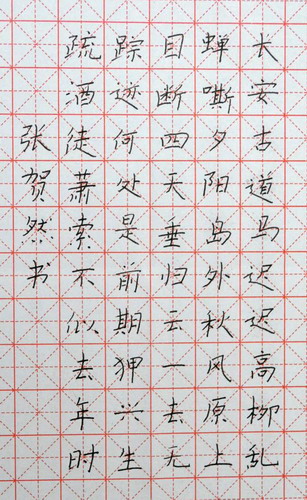 长安古道马迟迟高柳乱
蝉嘶夕阳岛外秋风原上
目断四天垂归云一去无
踪迹何处是前期狎兴生
疏酒徒萧索不似去年时
张贺然书